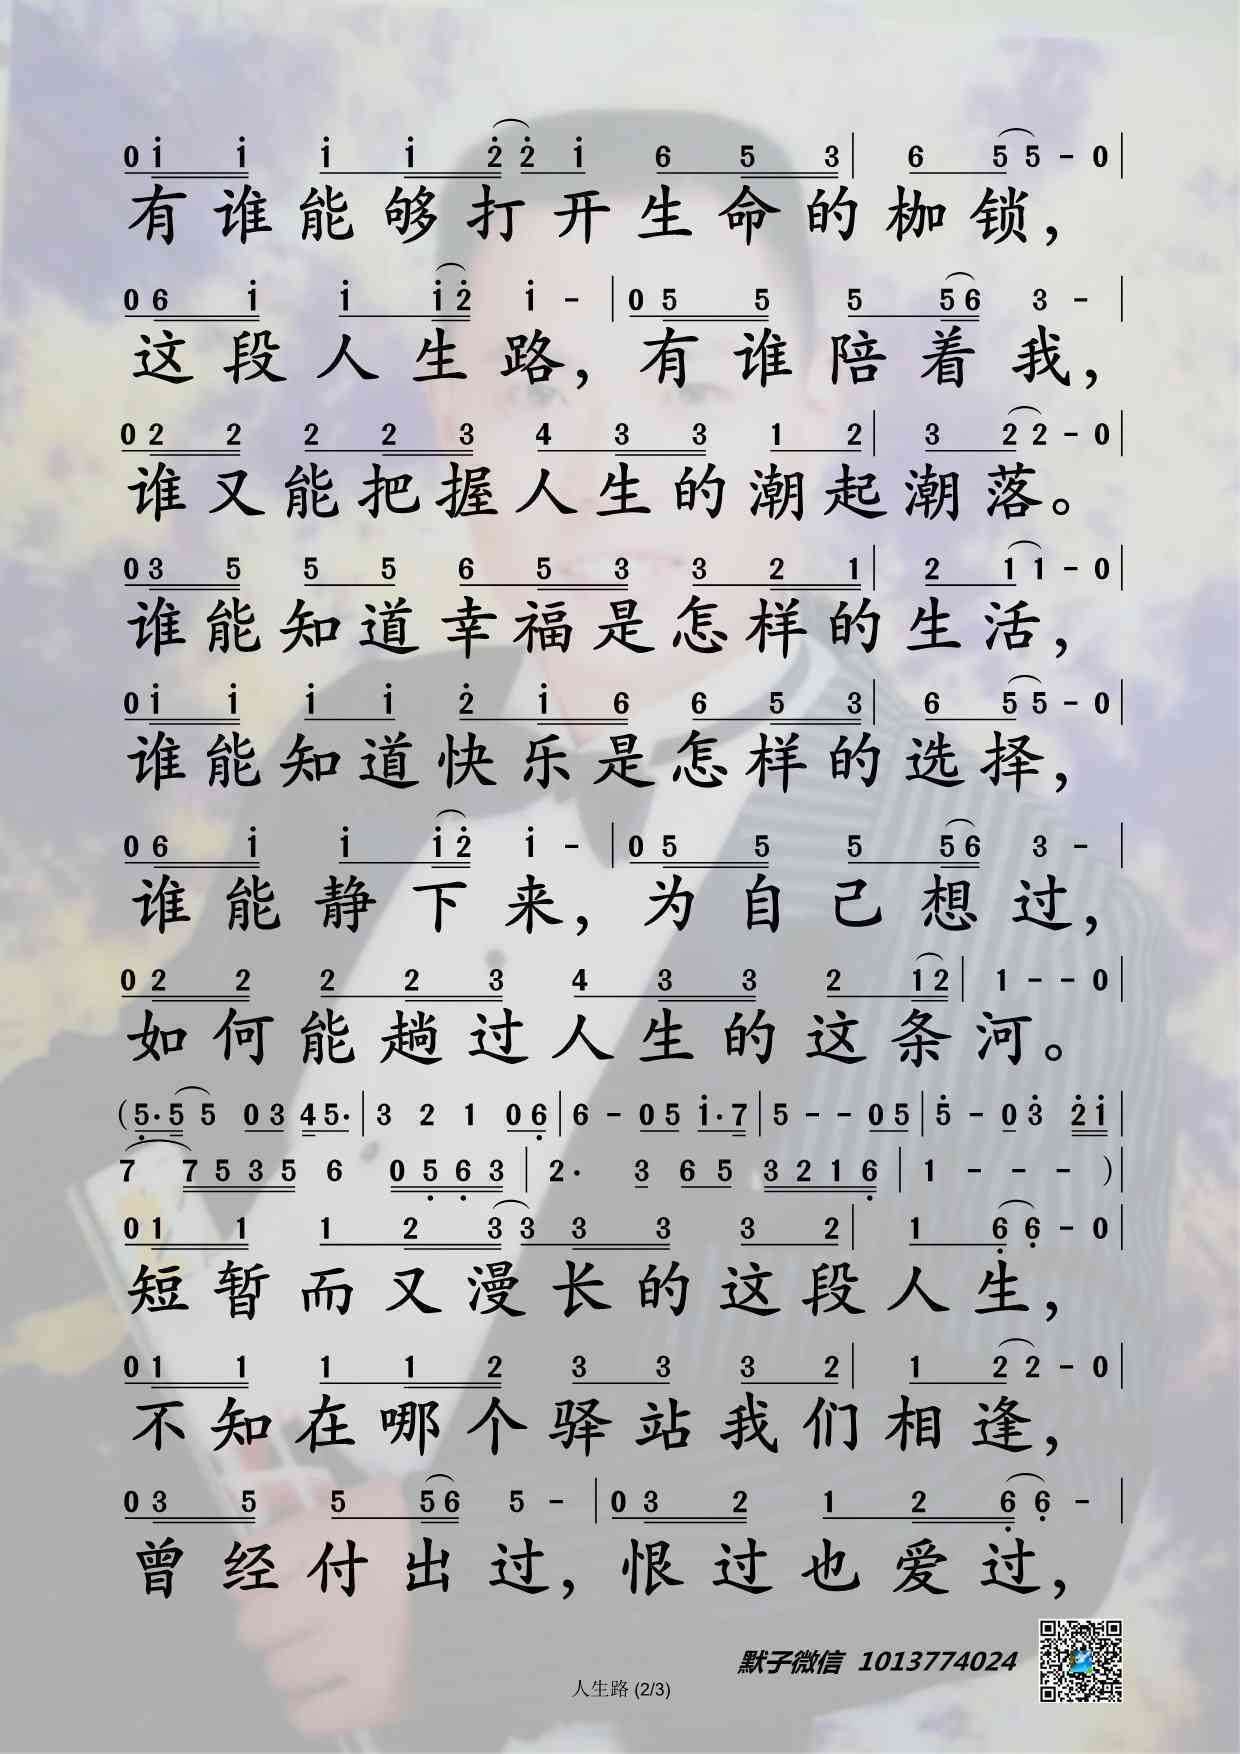 0 1 1 1 1 2 2 1 6 5 3 | 6 5 5 - 0 |
有谁能够打开生命的枷锁，
0 6 1 1 1 2 1 - | 0 5 5 5 5 6 3 - |
这段人生路，有谁陪着我，
0 2 2 2 2 3 4 3 3 1 2 | 3 2 2 - 0 |
谁又能把握人生的潮起潮落。
0 3 5 5 5 6 5 3 3 2 1 | 2 1 1 - 0 |
谁能知道幸福是怎样的生活，
0 1 1 1 1 2 1 6 6 5 3 | 6 5 5 - 0 |
谁能知道快乐是怎样的选择，
0 6 1 1 1 2 1 - | 0 5 5 5 5 6 3 - |
谁能静下来，为自己想过，
0 2 2 2 2 3 4 3 3 2 1 2 | 1 - - 0 |
如何能趟过人生的这条河。
( 5· 5 5 0 3 4 5· | 3 2 1 0 6 | 6 - 0 5 1· 7 | 5 - - 0 5 | 5 - 0 3 2 1 |
7 7 5 3 5 6 0 5 6 3 | 2· 3 6 5 3 2 1 6 | 1 - - - ) |
0 1 1 1 2 3 3 3 3 3 2 | 1 6 6 - 0 |
短暂而又漫长的这段人生，
0 1 1 1 1 2 3 3 3 2 | 1 2 2 - 0 |
不知在哪个驿站我们相逢，
0 3 5 5 5 6 5 - | 0 3 2 1 2 6 6 - |
曾经付出过，恨过也爱过，
默子微信 1013774024
人生路 (2/3)